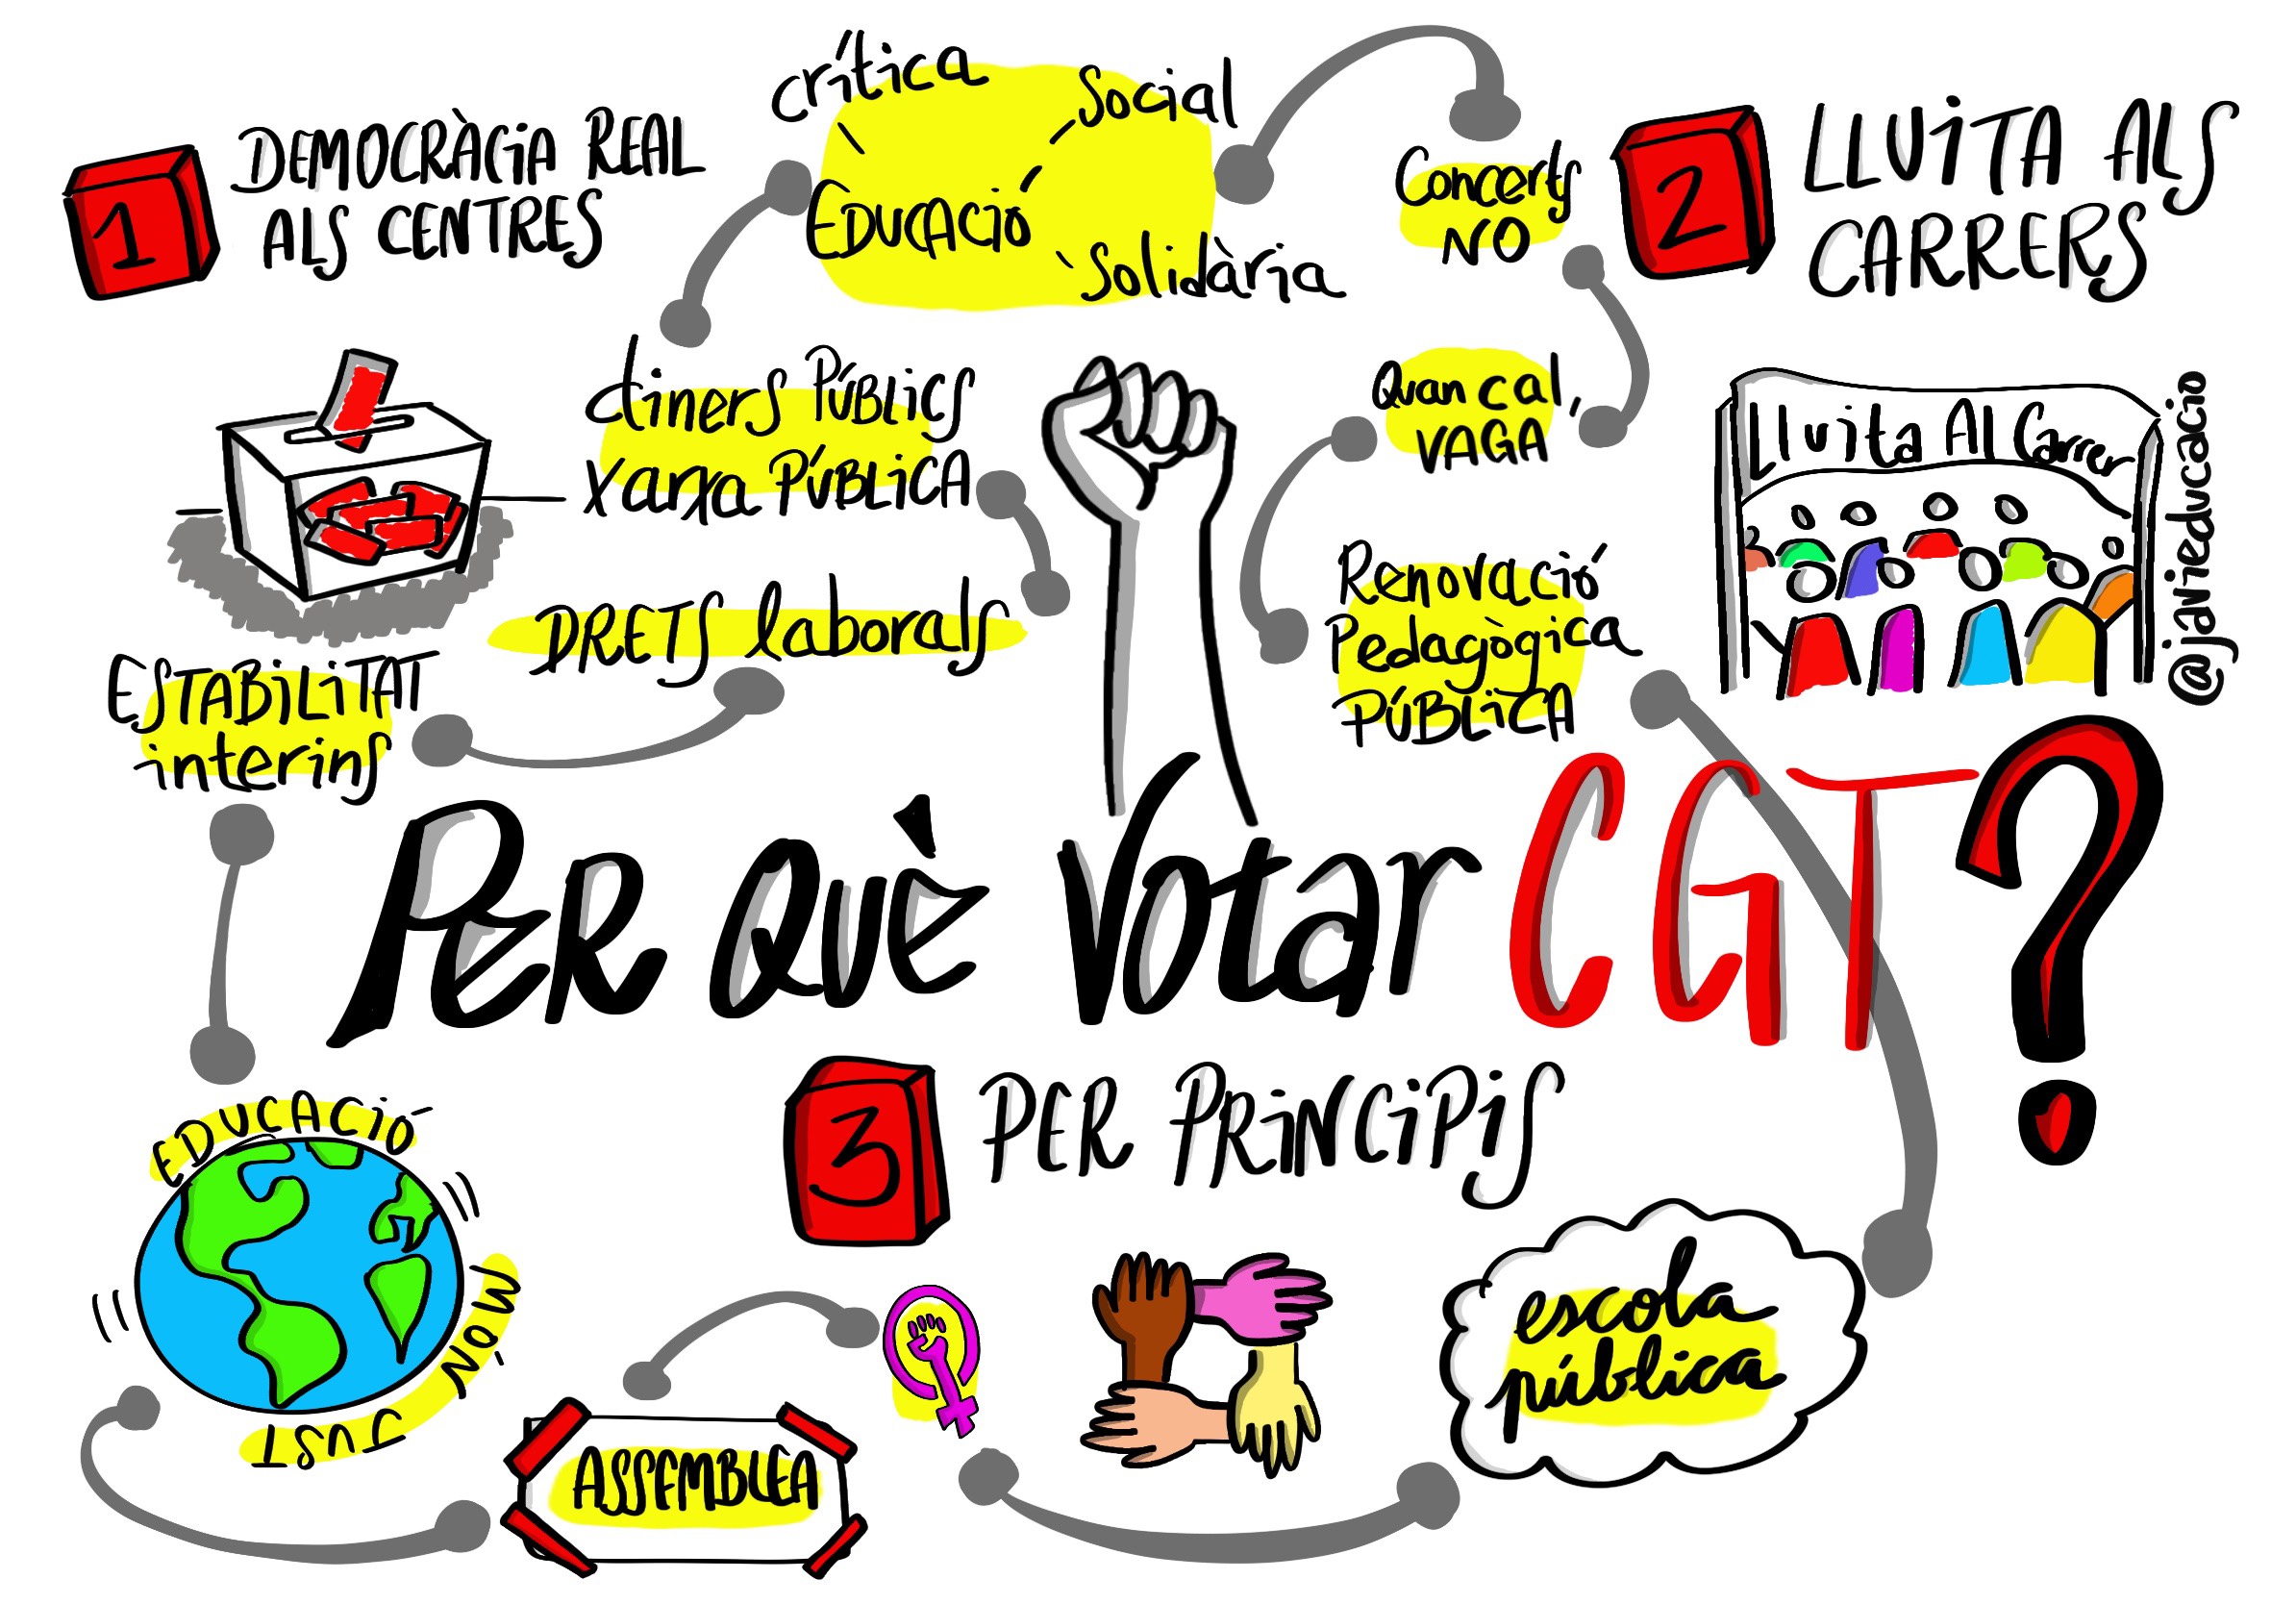 1
DEMOCRÀCiA REAL
ALS CENTRES
crítica
Social
EDUCACIÓ
Solidària
Concerts
NO
2
LLUiTA ALS
CARRERS
diners PÚBLiCS
Xarxa PÚBLiCA
Quan cal,
VAGA
Lluita Al Carrer
@javieducacio
DRETS laborals
Renovació
Pedagògica
PÚBLiCA
ESTABiLiTAT
interins
PER QUÈ Votar CGT?
3
PER PRiNCiPiS
EDUCACiÓ
MÓN
JUST
ASSEMBLEA
escola
pública